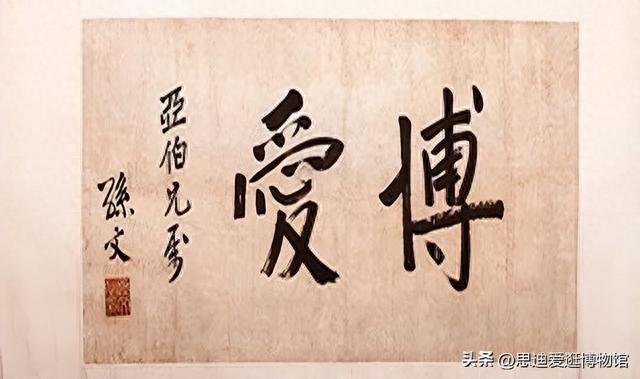 博愛
亞伯兄屬
孫文
头条 @思迪爱逛博物馆